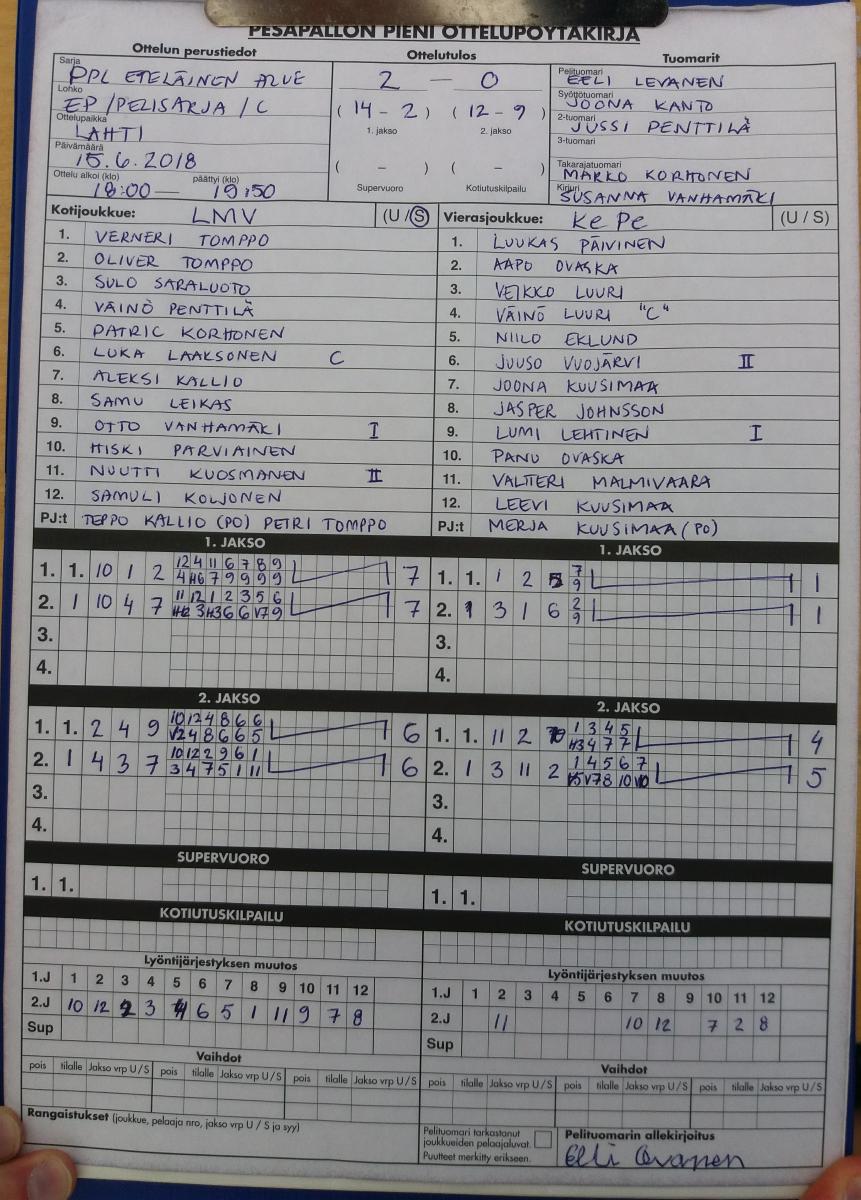 PESÄPALLON PIENI OTTELUPÖYTÄKIRJA
Ottelun perustiedot
Sarja
PPL ETELÄINEN ALUE
Lohko
EP/PELISARJA/C
Ottelupaikka
LAHTI
Päivämäärä
15.6.2018
Ottelu alkoi (klo) päättyi (klo)
18:00 — 19:50
Ottelutulos
2 — 0
( 14 - 2 ) ( 12 - 9 )
1. jakso 2. jakso
( - ) ( - )
Supervuoro Kotiutuskilpailu
Tuomarit
Pelituomari
EELI LEVANEN
Syöttötuomari
JOONA KANTO
2-tuomari
JUSSI PENTTILÄ
3-tuomari
Takarajatuomari
MARKO KORHONEN
Kirjuri
SUSANNA VANHAMÄKI
Kotijoukkue: LMV (U / S)
1. VERNERI TOMPPO
2. OLIVER TOMPPO
3. SULO SARALUOTO
4. VÄINÖ PENTTILÄ
5. PATRIC KORHONEN
6. LUKA LAAKSONEN C
7. ALEKSI KALLIO
8. SAMU LEIKAS
9. OTTO VANHAMÄKI I
10. HISKI PARVIAINEN
11. NUUTTI KUOSMANEN II
12. SAMULI KOLJONEN
PJ:t TEPPO KALLIO (PO) PETRI TOMPPO
Vierasjoukkue: KePe (U / S)
1. LUUKAS PÄIVINEN
2. AAPO OVASKA
3. VEIKKO LUURI
4. VÄINÖ LUURI "C"
5. NIILO EKLUND
6. JUUSO VUOJÄRVI II
7. JOONA KUUSIMAA
8. JASPER JOHNSSON
9. LUMI LEHTINEN I
10. PANU OVASKA
11. VALTTERI MALMIVAARA
12. LEEVI KUUSIMAA
PJ:t MERJA KUUSIMAA (PO)
1. JAKSO
1. 1. 10 1 2 12 4 11 6 7 8 9 7
7 9 9 9 9
2. 1 10 4 7 11 12 1 2 3 5 6 7
3.
4.
1. JAKSO
1. 1. 1 2 7 1
9
2. 1 3 1 6 2 1
9
3.
4.
2. JAKSO
1. 1. 2 4 9 10 12 4 8 6 6 6
V2 4 8 6 6 5
2. 1 4 3 7 10 12 2 9 6 1 6
3 4 7 5 1 11
3.
4.
2. JAKSO
1. 1. 11 2 1 3 4 5 4
H3 4 7 7
2. 1 3 11 2 1 4 5 6 7 5
V5 V7 8 10
3.
4.
SUPERVUORO
1. 1.
SUPERVUORO
1. 1.
KOTIUTUSKILPAILU
KOTIUTUSKILPAILU
Lyöntijärjestyksen muutos
1.J 1 2 3 4 5 6 7 8 9 10 11 12
2.J 10 12 2 3 4 6 5 1 11 9 7 8
Sup
Lyöntijärjestyksen muutos
1.J 1 2 3 4 5 6 7 8 9 10 11 12
2.J 11 10 12 7 2 8
Sup
Vaihdot
pois tilalle Jakso vrp U/S pois tilalle Jakso vrp U/S pois tilalle Jakso vrp U/S
Vaihdot
pois tilalle Jakso vrp U/S pois tilalle Jakso vrp U/S pois tilalle Jakso vrp U/S
Rangaistukset (joukkue, pelaaja nro, jakso vrp U / S ja syy)
Pelituomari tarkastanut
joukkueiden pelaajaluvat.
Puutteet merkitty erikseen.
Pelituomarin allekirjoitus